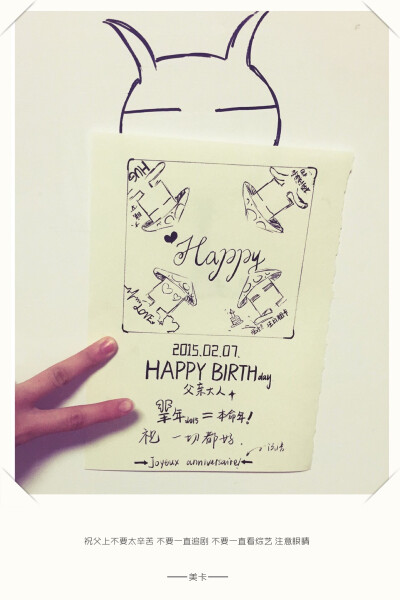 HUG
Happy
LOVE
2015.02.07.
HAPPY BIRTHday
父亲大人
羊年2015=本命年!
祝 一切都好.
Joyeux anniversaire!
祝父上不要太辛苦 不要一直追剧 不要一直看综艺 注意眼睛
美卡